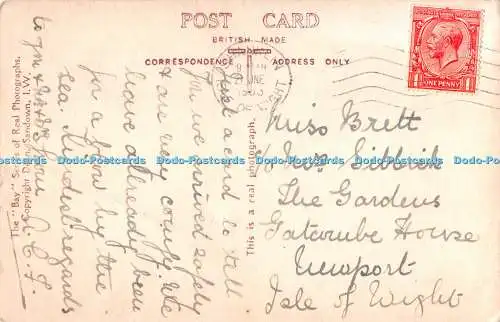 POST CARD
BRITISH MADE
CORRESPONDENCE
ADDRESS ONLY
ONE PENNY
JUNE
Just a card to tell
you we arrived safely
& are very comfy. We
have already been
for a
by the
sea. Kindest regards
to
& Mrs
from
The "Bay" Series of Real Photographs.
Copyright
Sandown, I.W.
This is a real photograph.
Miss Brett
c/o Mrs Sibbick
The Gardens
Gatcombe House
Newport
Isle of Wight
Dodo-Postcards Dodo-Postcards Dodo-Postcards Dodo-Postcards Dodo-Postcards Dodo-Postcards